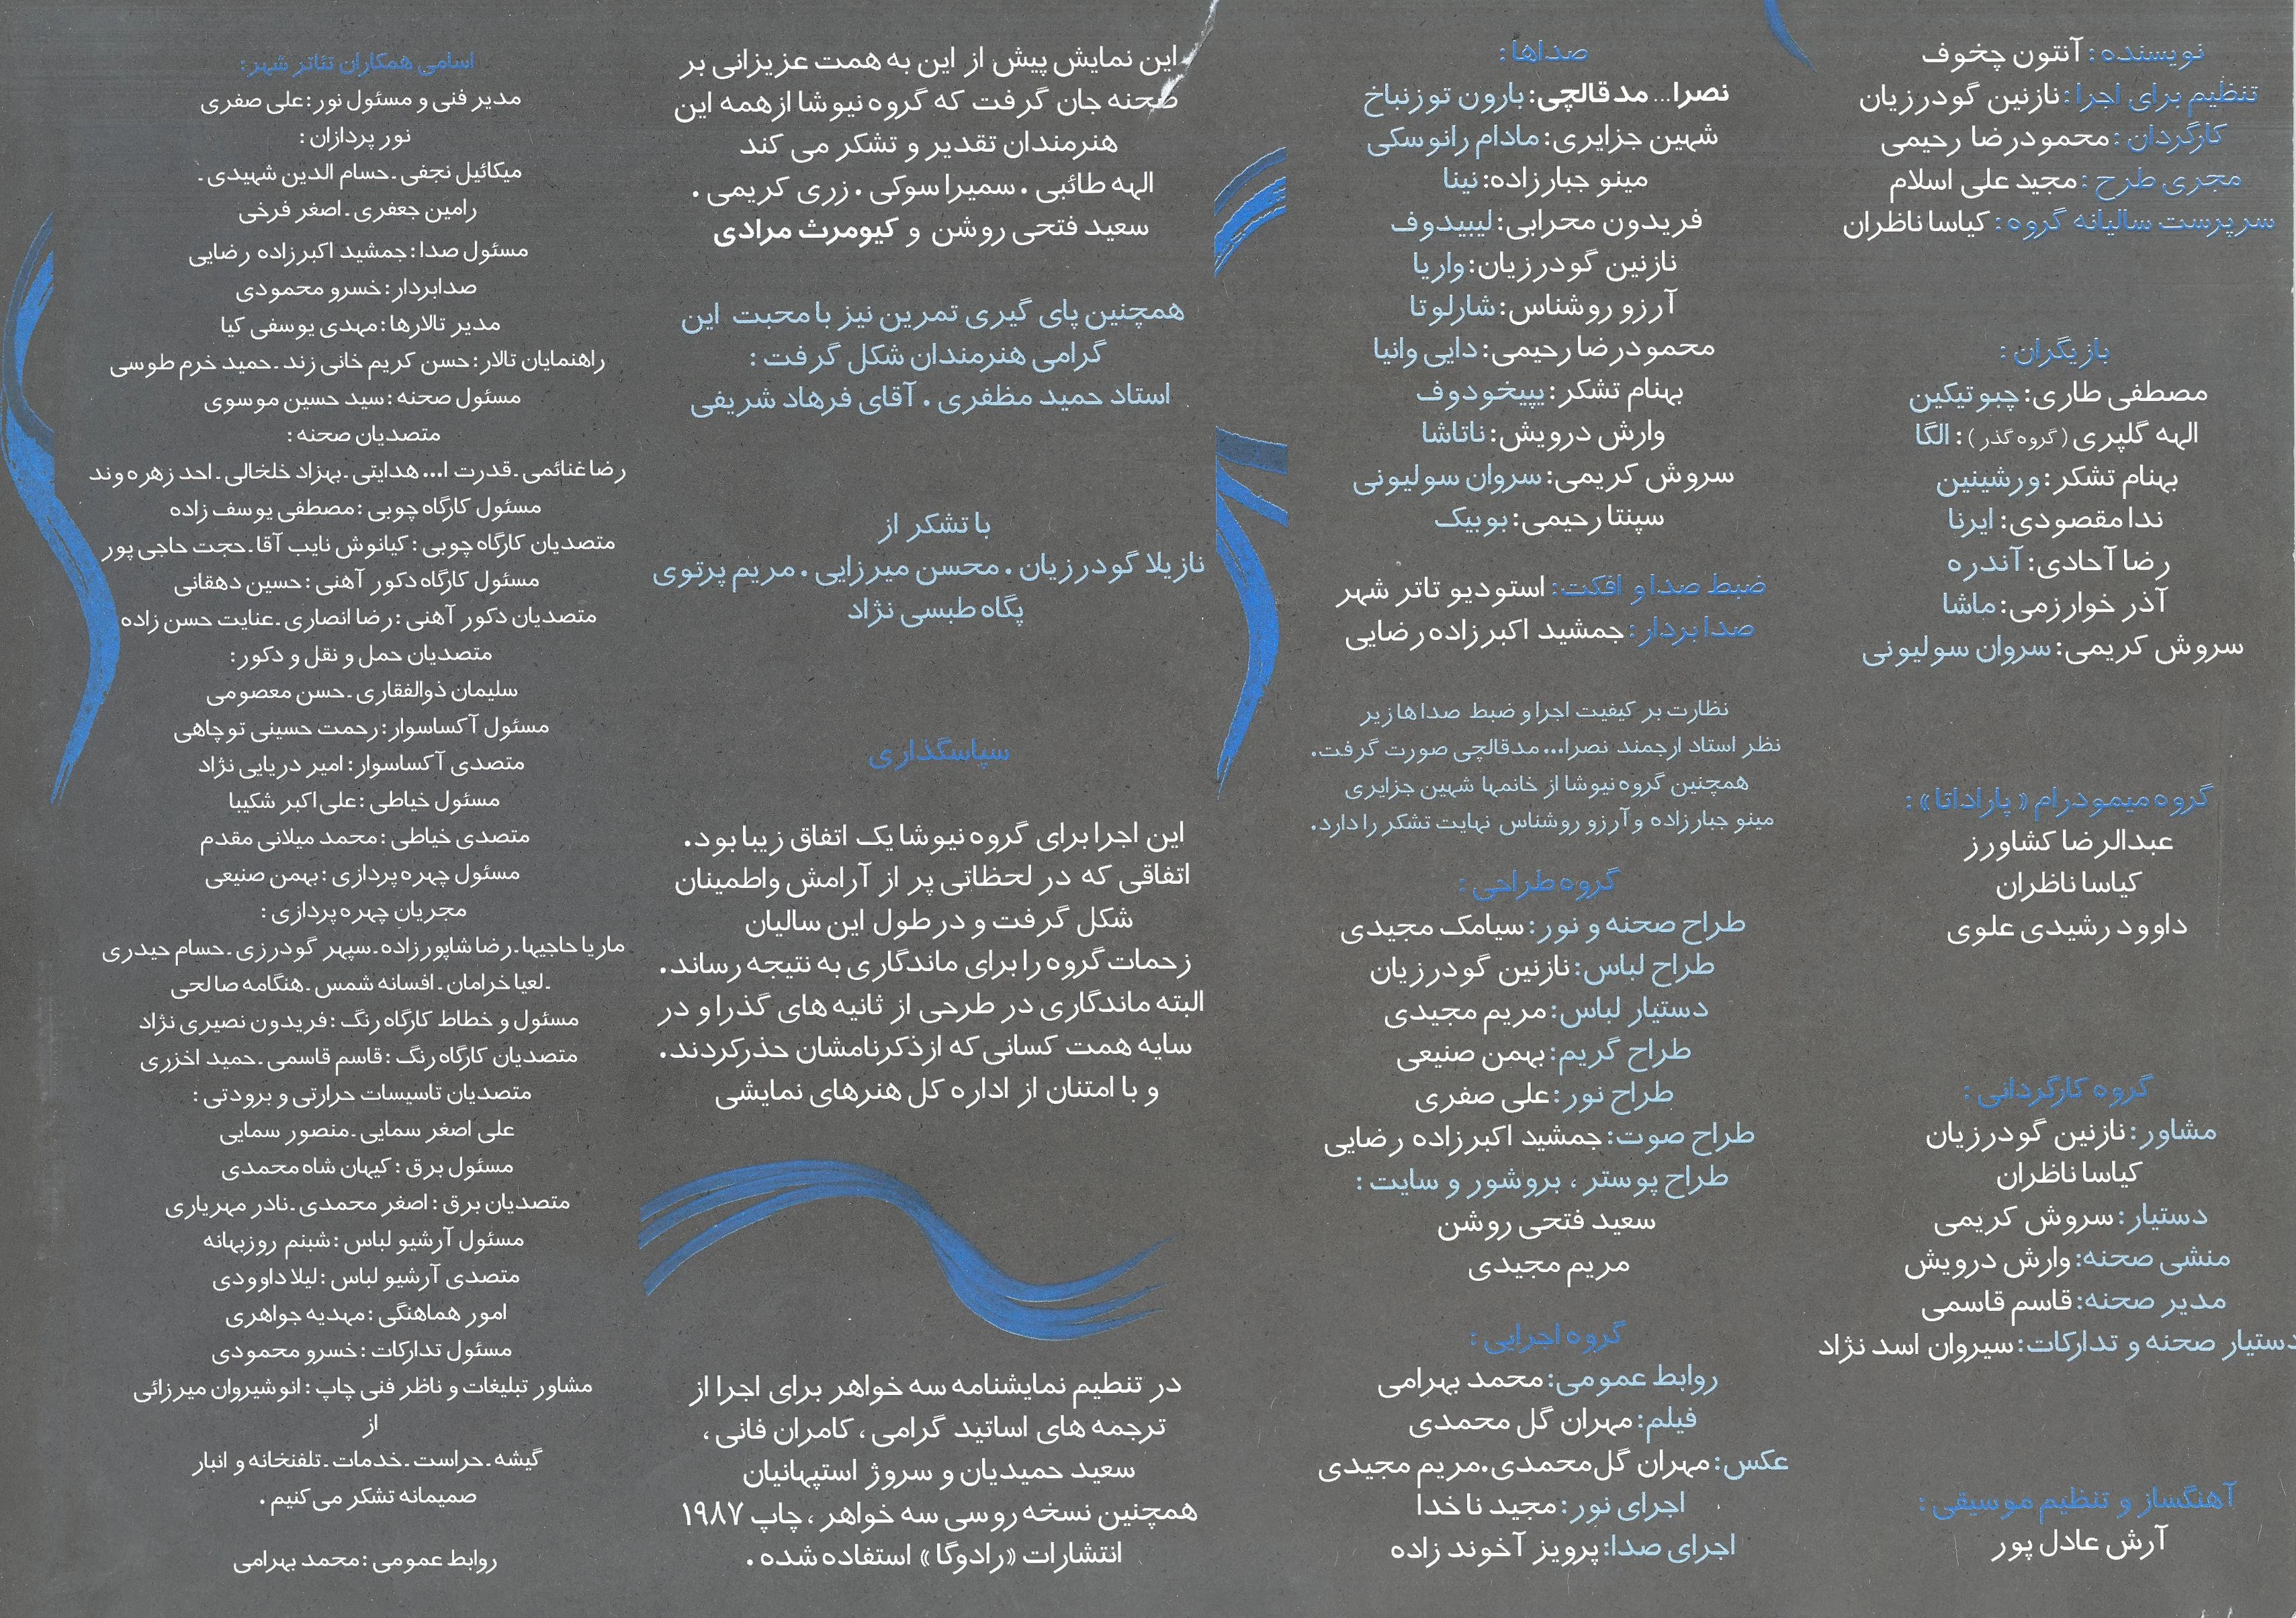 نویسنده: آنتون چخوف
تنظیم برای اجرا: نازنین گودرزیان
کارگردان: محمودرضا رحیمی
مجری طرح: مجید علی اسلام
سرپرست سالیانه گروه: کیاسا ناظران
بازیگران:
مصطفی طاری: چبوتیکین
الهه گلپری (گروه گذر): الگا
بهنام تشکر: ورشینین
ندا مقصودی: ایرنا
رضا آحادی: آندره
آذر خوارزمی: ماشا
سروش کریمی: سروان سولیونی
گروه میمودرام «پاراداتا»:
عبدالرضا کشاورز
کیاسا ناظران
داوود رشیدی علوی
گروه کارگردانی:
مشاور: نازنین گودرزیان
کیاسا ناظران
دستیار: سروش کریمی
منشی صحنه: وارش درویش
مدیر صحنه: قاسم قاسمی
دستیار صحنه و تدارکات: سیروان اسد نژاد
آهنگساز و تنظیم موسیقی:
آرش عادل پور
صداها:
نصرا... مدقالچی: بارون توزنباخ
شهین جزایری: مادام رانوسکی
مینو جبارزاده: نینا
فریدون محرابی: لیبیدوف
نازنین گودرزیان: واریا
آرزو روشناس: شارلوتا
محمودرضا رحیمی: دایی وانیا
بهنام تشکر: پیپخودوف
وارش درویش: ناتاشا
سروش کریمی: سروان سولیونی
سپنتا رحیمی: بوبیک
ضبط صدا و افکت: استودیو تاتر شهر
صدابردار: جمشید اکبرزاده رضایی
نظارت بر کیفیت اجرا و ضبط صداها زیر
نظر استاد ارجمند نصرا... مدقالچی صورت گرفت.
همچنین گروه نیوشا از خانمها شهین جزایری
مینو جبارزاده و آرزو روشناس نهایت تشکر را دارد.
گروه طراحی:
طراح صحنه و نور: سیامک مجیدی
طراح لباس: نازنین گودرزیان
دستیار لباس: مریم مجیدی
طراح گریم: بهمن صنیعی
طراح نور: علی صفری
طراح صوت: جمشید اکبرزاده رضایی
طراح پوستر، بروشور و سایت:
سعید فتحی روشن
مریم مجیدی
گروه اجرایی:
روابط عمومی: محمد بهرامی
فیلم: مهران گل محمدی
عکس: مهران گل محمدی. مریم مجیدی
اجرای نور: مجید ناخدا
اجرای صدا: پرویز آخوند زاده
این نمایش پیش از این به همت عزیزانی بر
صحنه جان گرفت که گروه نیوشا از همه این
هنرمندان تقدیر و تشکر می کند
الهه طائبی. سمیرا سوکی. زری کریمی.
سعید فتحی روشن و کیومرث مرادی
همچنین پای گیری تمرین نیز با محبت این
گرامی هنرمندان شکل گرفت:
استاد حمید مظفری. آقای فرهاد شریفی
با تشکر از
نازیلا گودرزیان. محسن میرزایی. مریم پرتوی
پگاه طبسی نژاد
سپاسگذاری
این اجرا برای گروه نیوشا یک اتفاق زیبا بود.
اتفاقی که در لحظاتی پر از آرامش واطمینان
شکل گرفت و در طول این سالیان
زحمات گروه را برای ماندگاری به نتیجه رساند.
البته ماندگاری در طرحی از ثانیه های گذرا و در
سایه همت کسانی که از ذکرنامشان حذر کردند.
و با امتنان از اداره کل هنرهای نمایشی
در تنظیم نمایشنامه سه خواهر برای اجرا از
ترجمه های اساتید گرامی، کامران فانی،
سعید حمیدیان و سروژ استپهانیان
همچنین نسخه روسی سه خواهر، چاپ ۱۹۸۷
انتشارات «رادوگا» استفاده شده.
اسامی همکاران تئاتر شهر:
مدیر فنی و مسئول نور: علی صفری
نور پردازان:
میکائیل نجفی ـ حسام الدین شهیدی ـ
رامین جعفری ـ اصغر فرخی
مسئول صدا: جمشید اکبرزاده رضایی
صدابردار: خسرو محمودی
مدیر تالارها: مهدی یوسفی کیا
راهنمایان تالار: حسن کریم خانی زند ـ حمید خرم طوسی
مسئول صحنه: سید حسین موسوی
متصدیان صحنه:
رضا غنائمی ـ قدرت ا... هدایتی ـ بهزاد خلخالی ـ احد زهره وند
مسئول کارگاه چوبی: مصطفی یوسف زاده
متصدیان کارگاه چوبی: کیانوش نایب آقا ـ حجت حاجی پور
مسئول کارگاه دکور آهنی: حسین دهقانی
متصدیان دکور آهنی: رضا انصاری ـ عنایت حسن زاده
متصدیان حمل و نقل و دکور:
سلیمان ذوالفقاری ـ حسن معصومی
مسئول آکساسوار: رحمت حسینی توچاهی
متصدی آکساسوار: امیر دریایی نژاد
مسئول خیاطی: علی اکبر شکیبا
متصدی خیاطی: محمد میلانی مقدم
مسئول چهره پردازی: بهمن صنیعی
مجریان چهره پردازی:
ماریا حاجیها ـ رضا شاپورزاده ـ سپهر گودرزی ـ حسام حیدری
ـ لعیا خرامان ـ افسانه شمس ـ هنگامه صالحی
مسئول و خطاط کارگاه رنگ: فریدون نصیری نژاد
متصدیان کارگاه رنگ: قاسم قاسمی ـ حمید اخزری
متصدیان تاسیسات حرارتی و برودتی:
علی اصغر سمایی ـ منصور سمایی
مسئول برق: کیهان شاه محمدی
متصدیان برق: اصغر محمدی ـ نادر مهریاری
مسئول آرشیو لباس: شبنم روزبهانه
متصدی آرشیو لباس: لیلا داوودی
امور هماهنگی: مهدیه جواهری
مسئول تدارکات: خسرو محمودی
مشاور تبلیغات و ناظر فنی چاپ: انوشیروان میرزائی
از
گیشه ـ حراست ـ خدمات ـ تلفنخانه و انبار
صمیمانه تشکر می کنیم.
روابط عمومی: محمد بهرامی